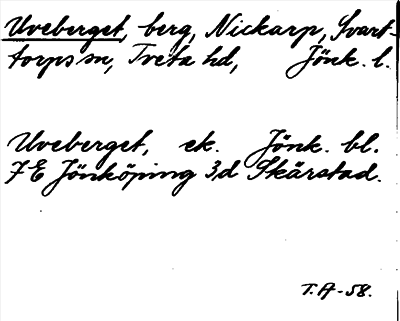 Uveberget, berg, Nickarp, Svart-
torps sn, Tveta hd, Jönk. l.
Uveberget, ek. Jönk. bl.
7E Jönköping 3,d Skärstad.
T.A-58.